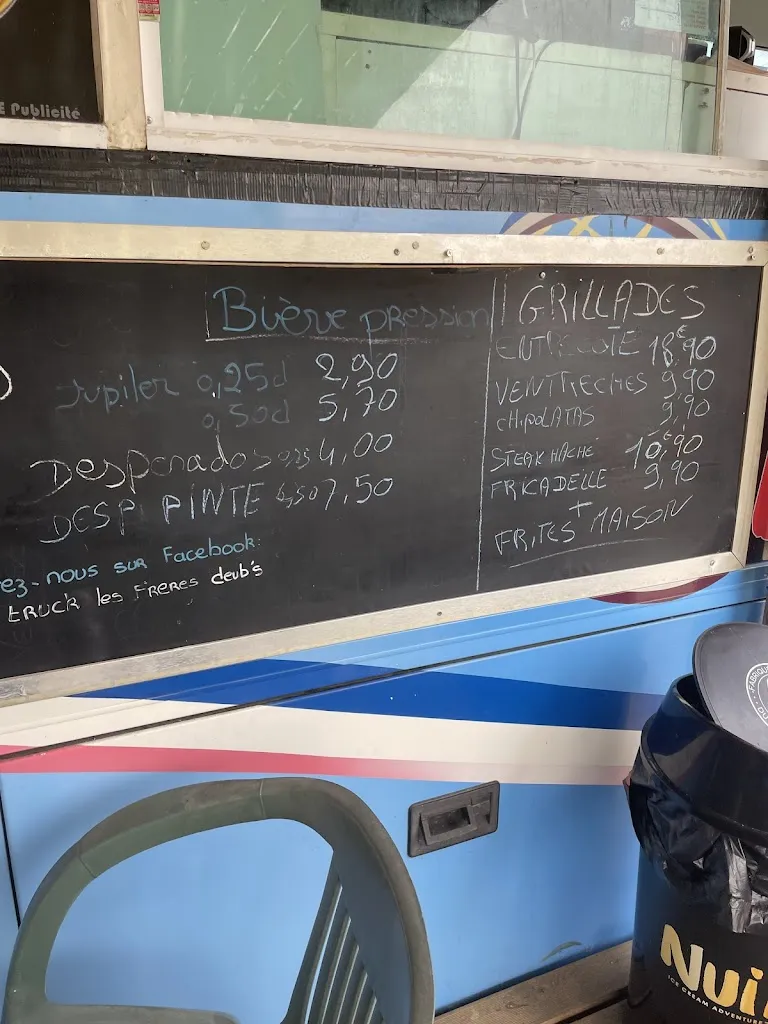 E Publicité
Bière pression
Jupiler 0,25d 2,90
0,50d 5,70
Desperados 4,00
DESP PINTE 0,50 7,50
ez-nous sur Facebook:
truck les Freres deub's
GRILLADES
ENTRECOTE 18,€90
VENTRECHES 9,90
CHIPOLATAS 9,90
STEAK HACHE 10,€90
FRICADELLE 9,90
+
FRITES MAISON
Nui
ICE CREAM ADVENTURE